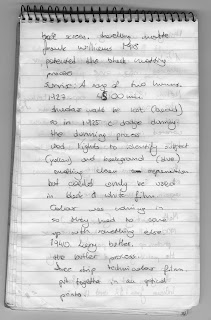 back screen. travelling matte
frank williams 1918
patented the black matting
process
Sunrise: A song of two humans
1927 5:00 mins
shadows would be lost (head)
so in 1925 c dodge dunning
the dunning process
used lights to identify subject
(yellow) and background (blue)
enabling clean separation
but could only be used
in black & white film
Colour was coming in
so they had to come
up with something else
1940 larry butler.
the butler process
three strip technicolour film.
put together in an optical
printer